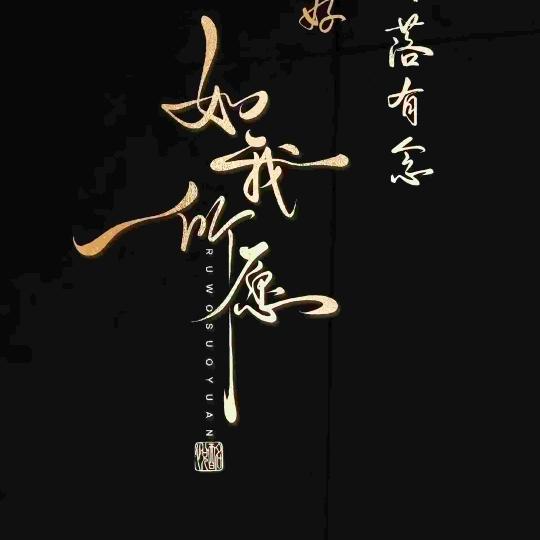 落有念
好
如我所愿
RUWOSUOYUAN